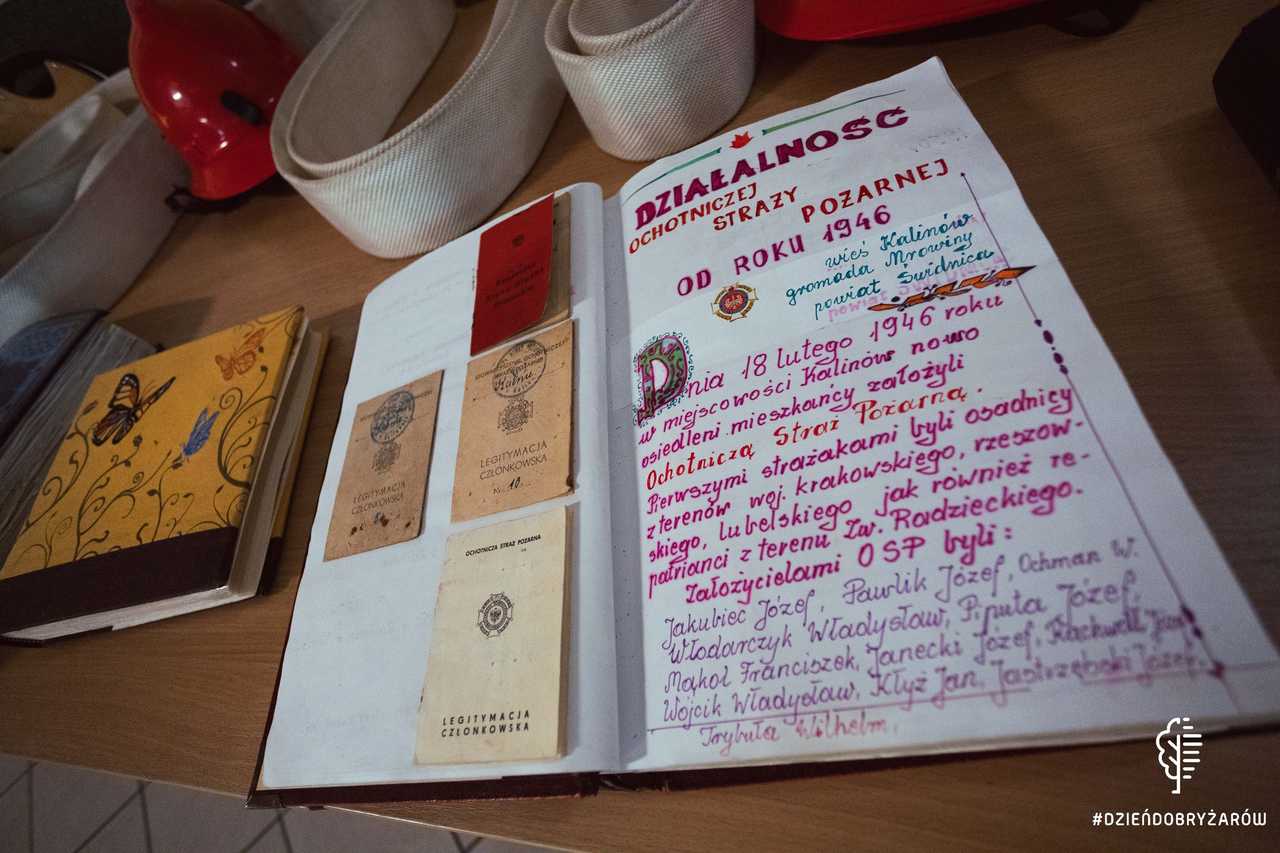 DZIAŁALNOŚĆ
OCHOTNICZEJ
STRAŻY
POŻARNEJ
OD ROKU 1946
wieś Kalinów
gromada Mrowiny
powiat Świdnica
Dnia 18 lutego 1946 roku
w miejscowości Kalinów nowo
osiedleni mieszkańcy założyli
Ochotniczą Straż Pożarną
Pierwszymi strażakami byli osadnicy
z terenów woj. krakowskiego, rzeszow-
skiego, lubelskiego jak również re-
patrianci z terenu Zw. Radzieckiego.
Założycielami OSP byli:
Jakubiec Józef, Pawlik Józef, Ochman W.
Włodarczyk Władysław, Piputa Józef,
Mąkol Franciszek, Janecki Józef, Rachwał Jan,
Wójcik Władysław, Kłyż Jan, Jastrzębski Józef,
Trybuła Wilhelm.
LEGITYMACJA
CZŁONKOWSKA
Nr. 10
LEGITYMACJA
CZŁONKOWSKA
OCHOTNICZA STRAŻ POŻARNA
LEGITYMACJA
CZŁONKOWSKA
#DZIEŃDOBRYŻARÓW